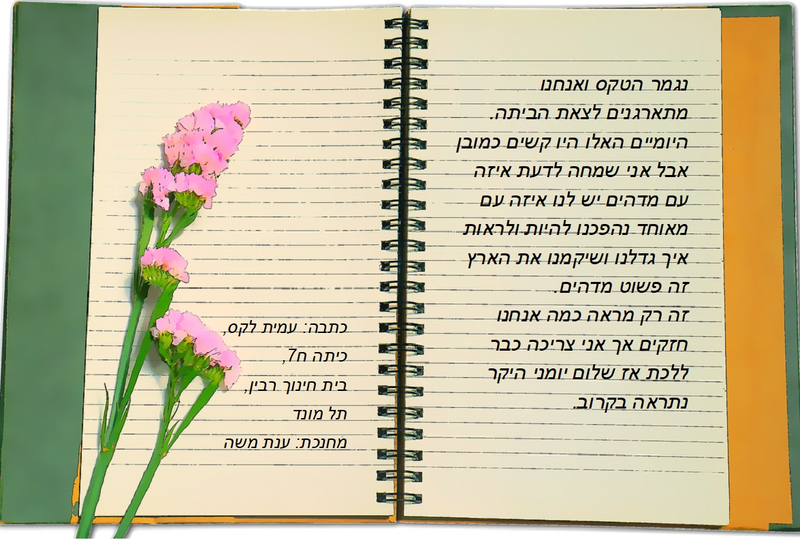 נגמר הטקס ואנחנו
מתארגנים לצאת הביתה.
היומיים האלו היו קשים כמובן
אבל אני שמחה לדעת איזה
עם מדהים יש לנו איזה עם
מאוחד נהפכנו להיות ולראות
איך גדלנו ושיקמנו את הארץ
זה פשוט מדהים.
זה רק מראה כמה אנחנו
חזקים אך אני צריכה כבר
ללכת אז שלום יומני היקר
נתראה בקרוב.
כתבה: עמית לקס,
כיתה ח7,
בית חינוך רבין,
תל מונד
מחנכת: ענת משה